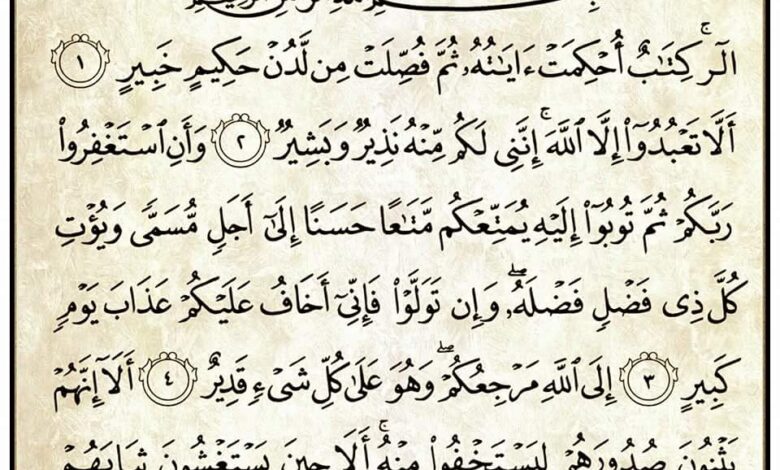 بِسْمِ ٱللَّهِ ٱلرَّحْمَٰنِ ٱلرَّحِيمِ
الٓرۚ كِتَٰبٌ أُحْكِمَتْ ءَايَٰتُهُۥ ثُمَّ فُصِّلَتْ مِن لَّدُنْ حَكِيمٍ خَبِيرٍ ١
أَلَّا تَعْبُدُوٓا۟ إِلَّا ٱللَّهَۚ إِنَّنِى لَكُم مِّنْهُ نَذِيرٌ وَبَشِيرٌ ٢ وَأَنِ ٱسْتَغْفِرُوا۟
رَبَّكُمْ ثُمَّ تُوبُوٓا۟ إِلَيْهِ يُمَتِّعْكُم مَّتَٰعًا حَسَنًا إِلَىٰٓ أَجَلٍ مُّسَمًّى وَيُؤْتِ
كُلَّ ذِى فَضْلٍ فَضْلَهُۥۖ وَإِن تَوَلَّوْا۟ فَإِنِّىٓ أَخَافُ عَلَيْكُمْ عَذَابَ يَوْمٍ
كَبِيرٍ ٣ إِلَى ٱللَّهِ مَرْجِعُكُمْۖ وَهُوَ عَلَىٰ كُلِّ شَىْءٍ قَدِيرٌ ٤ أَلَآ إِنَّهُمْ
يَثْنُونَ صُدُورَهُمْ لِيَسْتَخْفُوا۟ مِنْهُۚ أَلَا حِينَ يَسْتَغْشُونَ ثِيَابَهُمْ